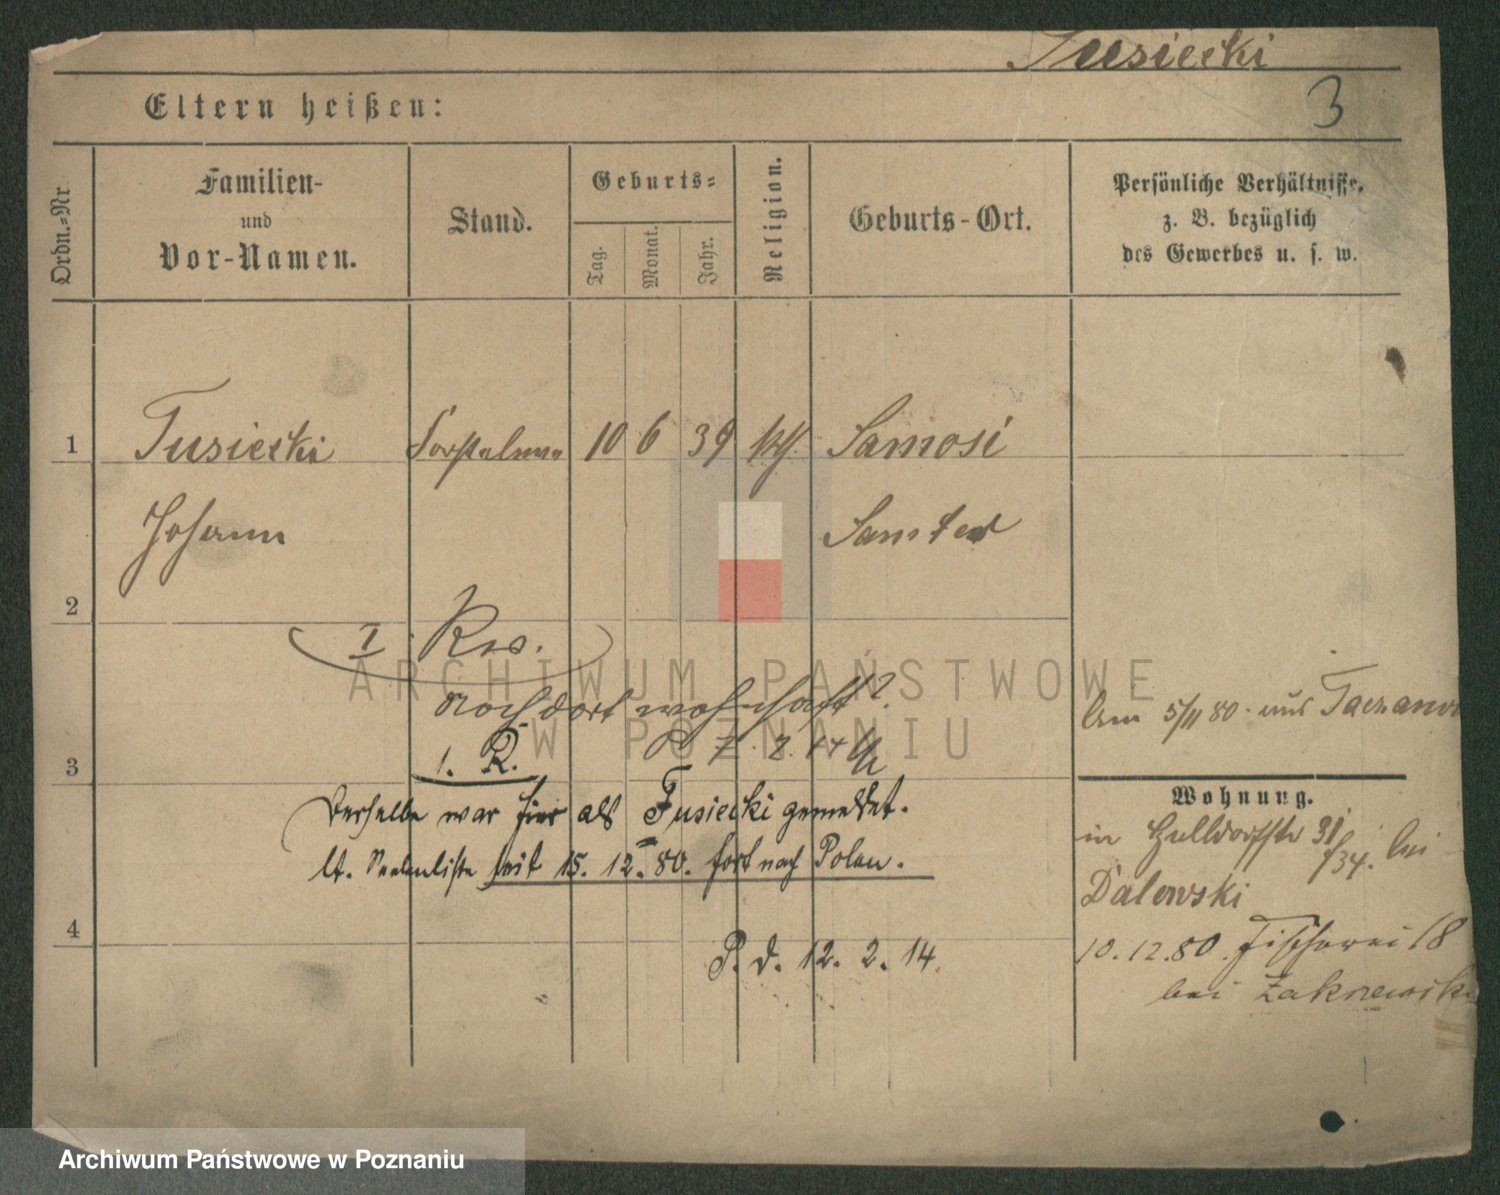 Tusiecki
3
Eltern heißen:
Ordn.-Nr
Familien-
und
Vor-Namen.
Stand.
Geburts-
Tag.
Monat.
Jahr.
Religion.
Geburts-Ort.
Persönliche Verhältnisse,
z. B. bezüglich
des Gewerbes u. s. w.
1 Tusiecki 10 6 39 kth. Samosi
Johann
Samter
2
I Res.
noch dort wohnhaft?
P. d. 7. 2. 14
1. R.
3
Derselbe war hier als Tusiecki gemeldet.
lt. Seelenliste seit 15. 12. 80. fort nach Polen.
4
P. d. 12. 2. 14.
5/11 80. aus Taczanow
Wohnung.
in Halldorfstr 31/34. bei
Dalewski
10.12.80. Fischerei 18
bei Zakrzewski
ARCHIWUM PAŃSTWOWE
W POZNANIU
Archiwum Państwowe w Poznaniu